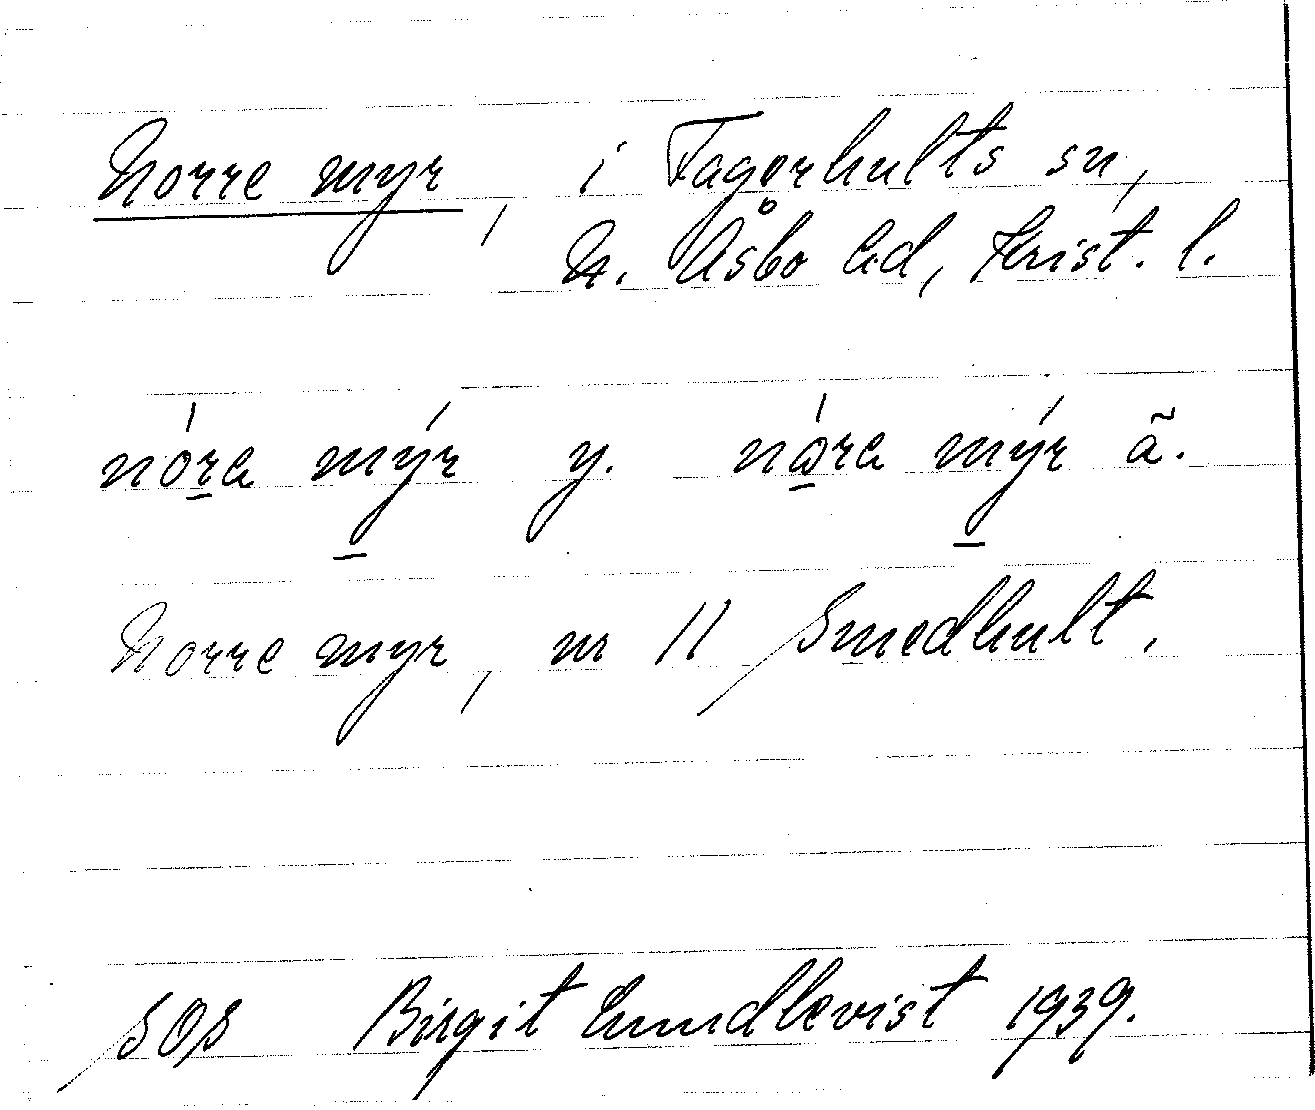 Norre myr, i Fagerhults sn,
N. Åsbo hd, Krist. l.
nóra mýr y. nóra mýr ã.
Norre myr, nr 11 Smedhult.
SOS Birgit Lundkvist 1939.